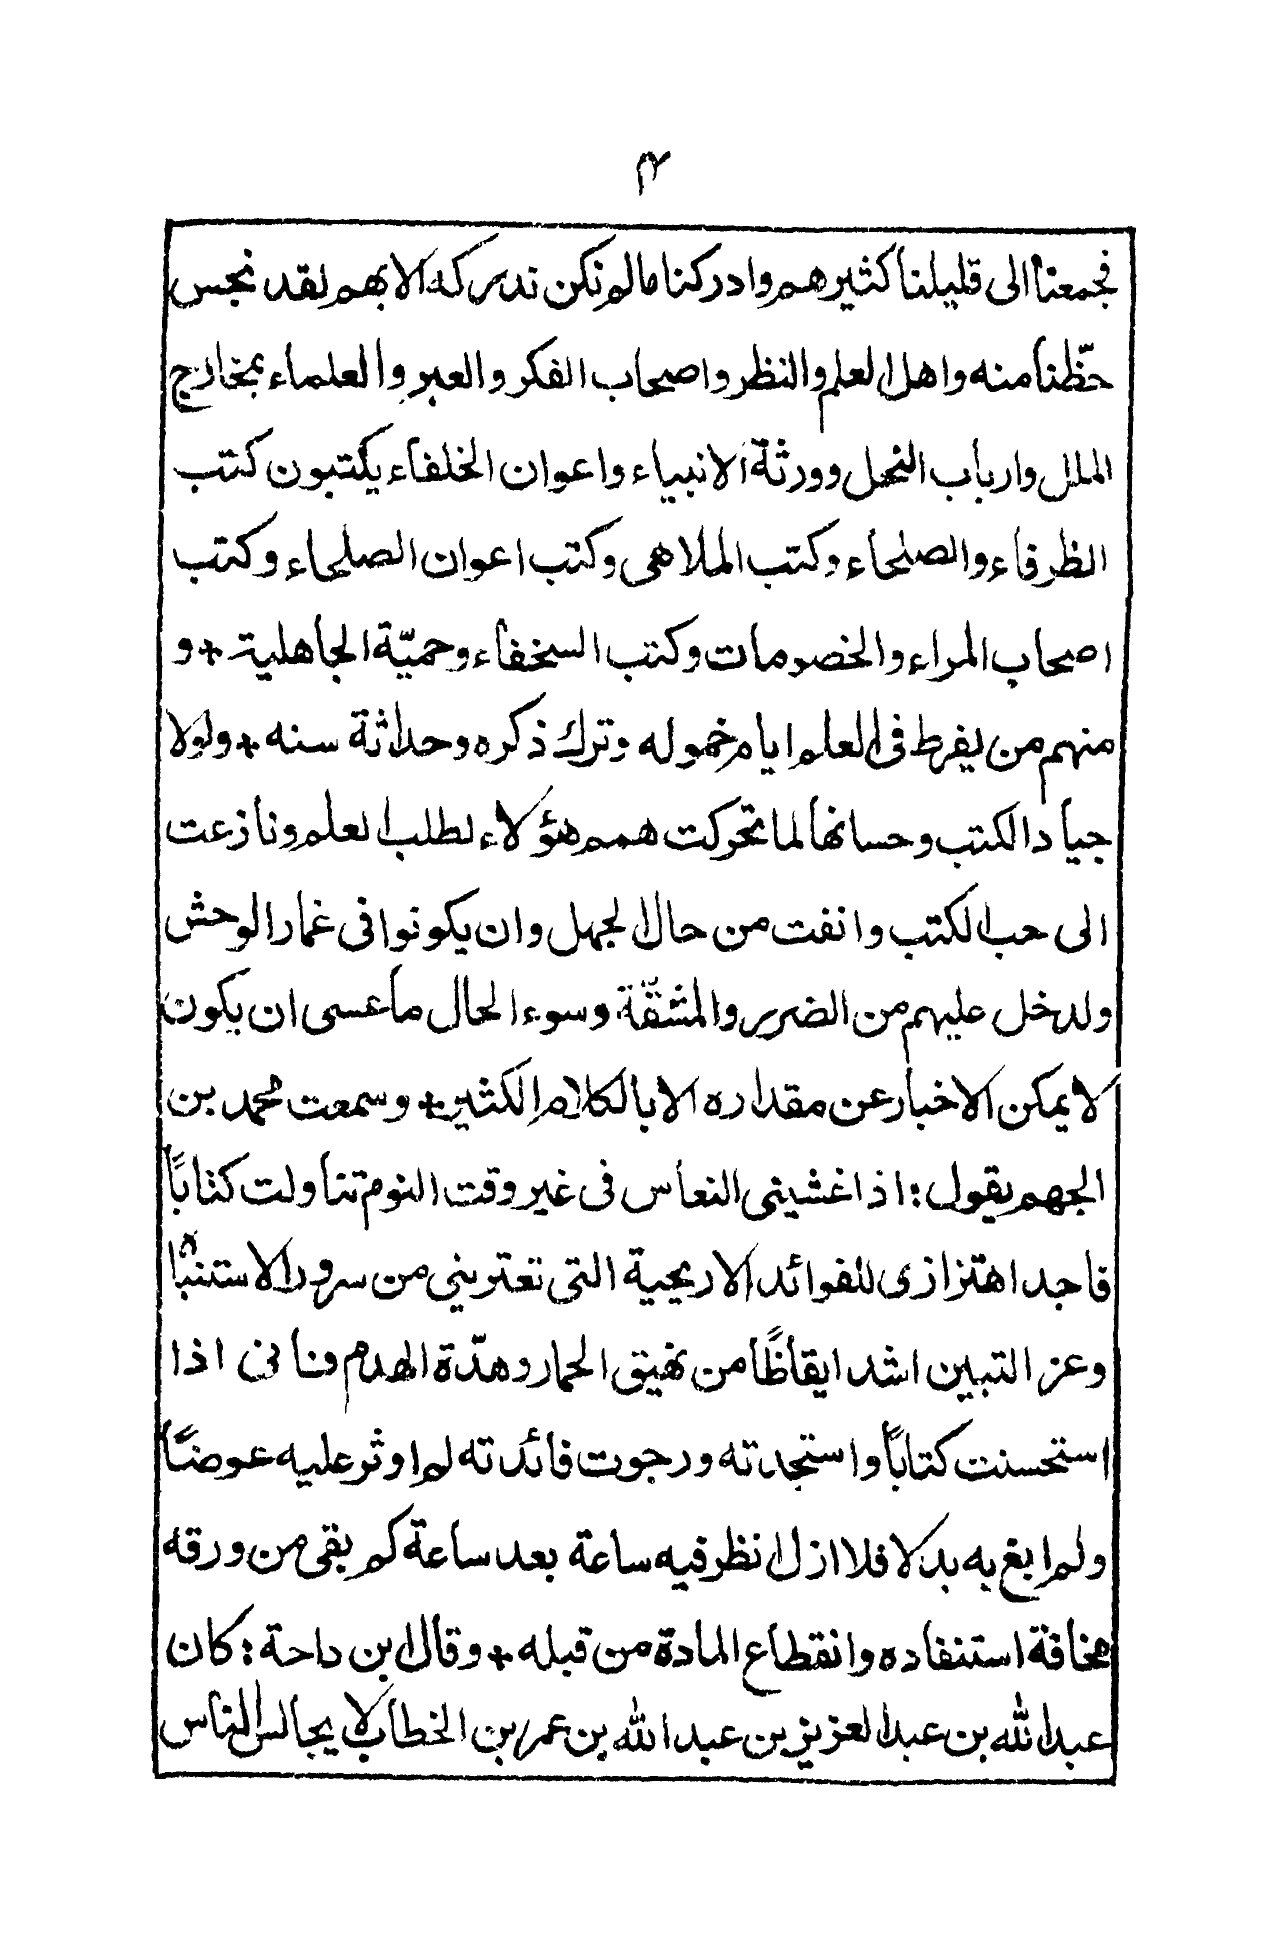 ٣
فجمعنا الى قليلنا كثيرهم وادركنا مالم نكن ندركه الا بهم لقد نجس
حظّنا منه واهل العلم والنظر واصحاب الفكر والعبر والعلماء بمخارج
الملل وارباب النحل وورثة الانبياء واعوان الخلفاء يكتبون كتب
الظرفاء والصلحاء وكتب الملاهى وكتب اعوان الصلحاء وكتب
اصحاب المراء والخصومات وكتب السخفاء وحميّة الجاهلية + و
منهم من يفرط فى العلم ايام خموله وترك ذكره وحداثة سنه + ولولا
جياد الكتب وحسانها لما تحركت همم هؤلاء لطلب العلم ونازعت
الى حب الكتب وانفت من حال الجهل وان يكونوا فى غمار الوحش
ولدخل عليهم من الضرير والمشقّة وسوء الحال ما عسى ان يكون
لا يمكن الاخبار عن مقداره الا بالكلام الكثير + وسمعت محمد بن
الجهم يقول: اذا غشينى النعاس فى غير وقت النوم تناولت كتابًا
فاجد اهتزازى للفوائد الاريحية التى تعترينى من سرور الاستنباه
وعز التبين اشد ايقاظًا من نهيق الحمار وهدّة الهدم فانى اذا
استحسنت كتابًا واستجدته ورجوت فائدته لم اوثر عليه عوضًا
ولم ابغ به بدلا فلا ازل انظر فيه ساعة بعد ساعة كم بقى من ورقه
مخافة استنفاده وانقطاع المادة من قبله + وقال ابن داحة: كان
عبد الله بن عبد العزيز بن عبد الله بن عمر بن الخطاب لا يجالس الناس